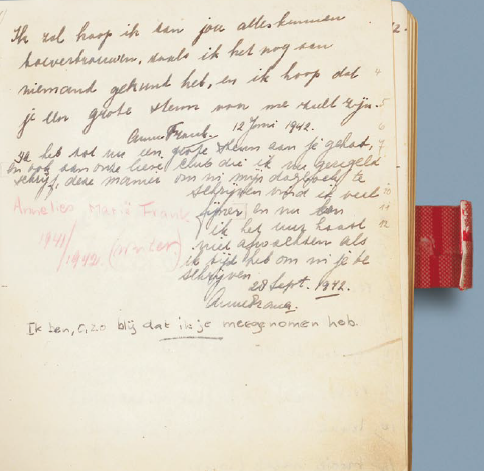 Ik zal hoop ik aan jou alles kunnen
toevertrouwen, zoals ik het nog aan
niemand gekund heb, en ik hoop dat
je een grote steun van me zult zijn.
Anne Frank. 12 Juni 1942.
Ik heb tot nu een grote steun aan je gehad,
en ook aan onze lieve club die ik nu geregeld
schrijf, deze manier om in mijn dagboek te
schrijven vind ik veel
fijner en nu kan
ik het uur haast
niet afwachten als
ik tijd heb om in je te
schrijven
28 Sept. 1942.
Anne Frank.
Annelies Marie Frank
1941/1942. (winter)
Ik ben, o, zo blij dat ik je meegenomen heb.